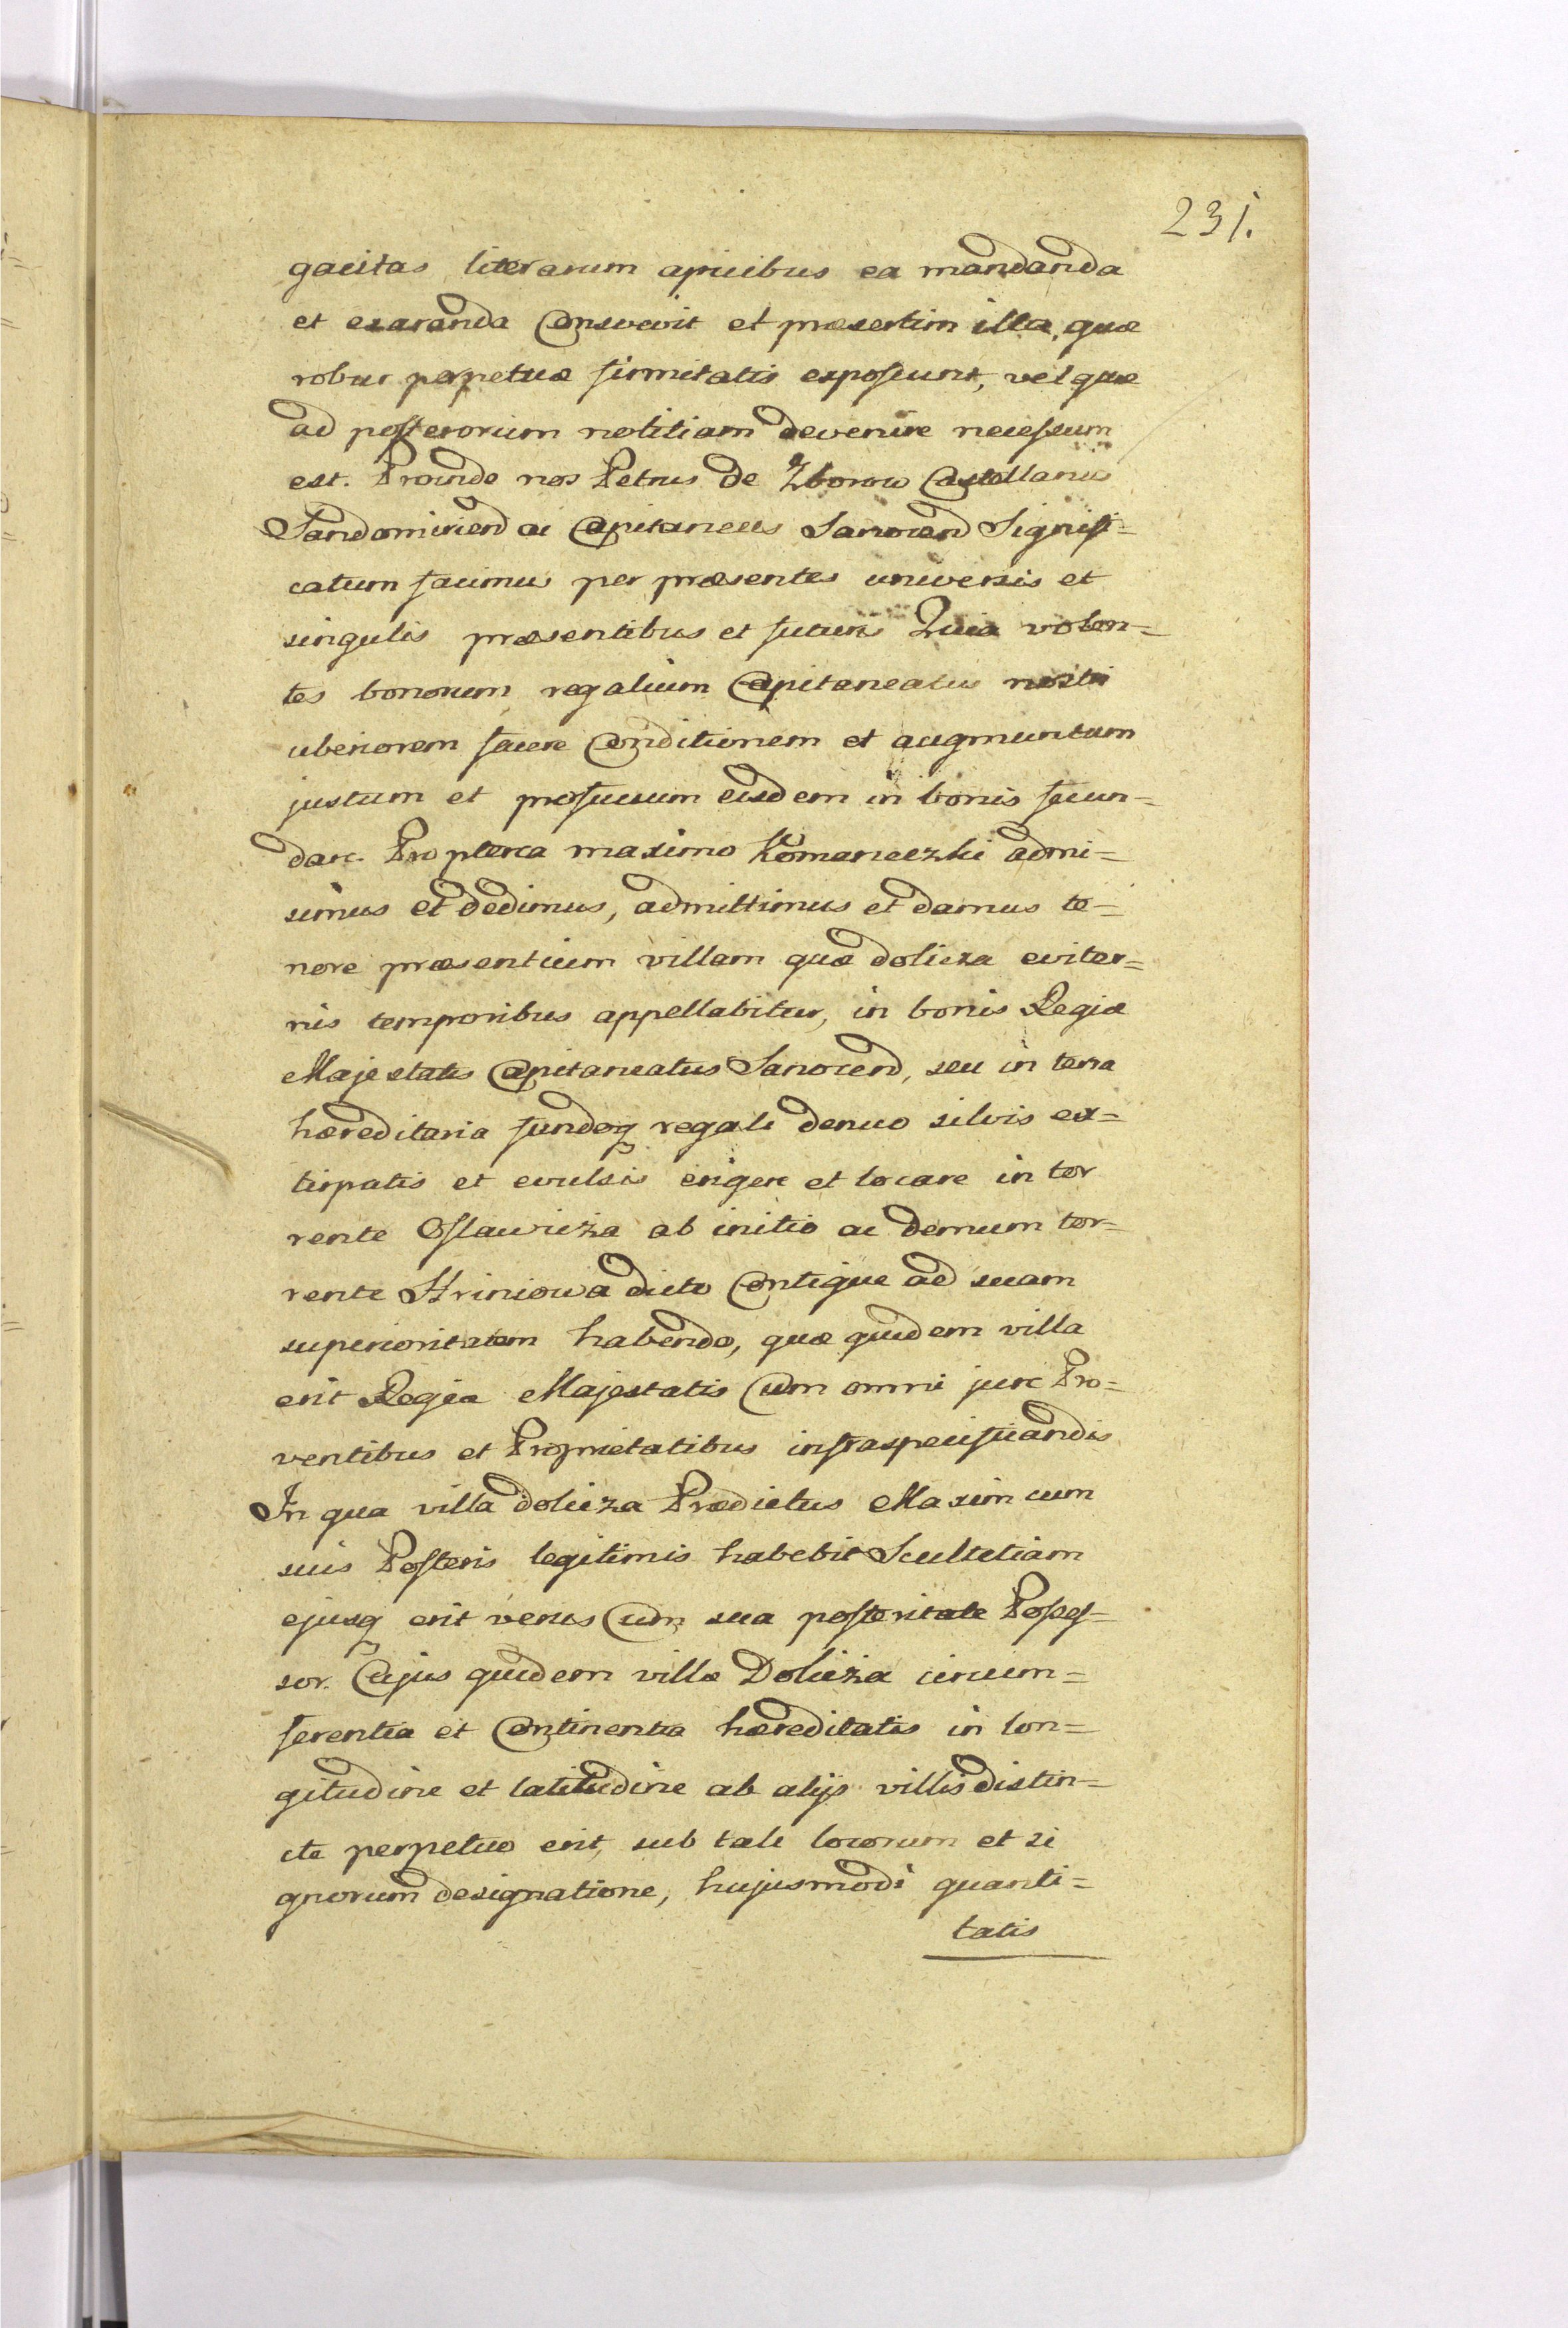 231.
gacitas literarum apicibus ea mandanda
et exaranda Consvevit et præsertim illa, quæ
robur perpetuæ firmitatis exposcunt, vel quæ
ad posterorum notitiam devenire necessum
est. Proinde nos Petrus de Zborow Castellanus
Sandomiriens ac Capitaneus Sanocens Signifi=
catum facimus per præsentes universis et
singulis præsentibus et futuris Quia volen=
tes bonorum regalium Capitaneatus nostri
uberiorem facere Conditionem et augmentum
justum et profuisum eisdem in bonis secun=
dare. Propterea maximo Komaneczki admi=
simus et dedimus, admittimus et damus te=
nore præsentium villam quæ dolicza eviter=
nis temporibus appellabitur, in bonis Regiæ
Majestatis Capitaneatus Sanocens, seu in terra
hæreditaria fundoq regali denuo silvis ex=
tirpatis et evulsis erigere et locare in tor
rente Oslawicza ab initio ac demum tor=
rente Hriniowa dicto Contigue ad suam
superioritatem habendo, quæ quidem villa
erit Regiæ Majestatis Cum omni jure Pro=
ventibus et Proprietatibus infraspecificandis
In qua villa dolicza Prædictus Maxim cum
suis Posteris legitimis habebit Scultetiam
ejusq erit verus Cum sua posteritate Posses=
sor. Cujus quidem villæ Dolicza circum=
ferentia et Continentia hæreditatis in lon=
gitudine et latitudine ab alijs villis distin=
cta perpetuo erit, sub tali locorum et si
gnorum designatione, hujusmodi quanti=
tatis